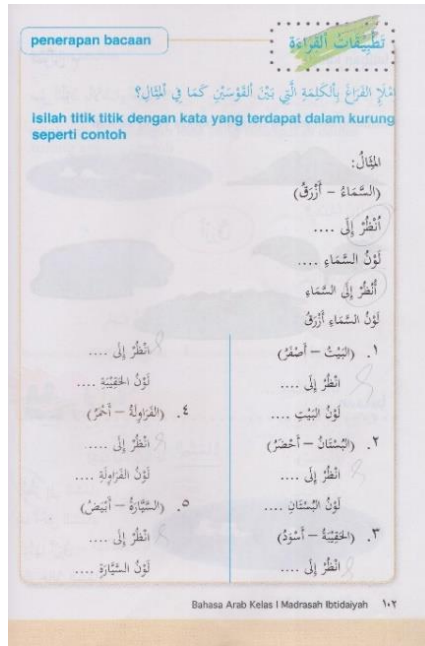 penerapan bacaan
تَطْبِيْقَاتُ الْقِرَاءَةِ
اِمْلَإِ الْفَرَاغَ بِالْكَلِمَةِ الَّتِي بَيْنَ الْقَوْسَيْنِ كَمَا فِي الْمِثَالِ؟
isilah titik titik dengan kata yang terdapat dalam kurung
seperti contoh
المِثَالُ:
(السَّمَاءُ – أَزْرَقُ)
أُنْظُرْ إِلَى ....
لَوْنُ السَّمَاءِ ....
أُنْظُرْ إِلَى السَّمَاءِ
لَوْنُ السَّمَاءِ أَزْرَقُ
١. (البَيْتُ – أَصْفَرُ)
انْظُرْ إِلَى ....
لَوْنُ البَيْتِ ....
٢. (البُسْتَانُ – أَخْضَرُ)
انْظُرْ إِلَى ....
لَوْنُ البُسْتَانِ ....
٣. (الحَقِيْبَةُ – أَسْوَدُ)
انْظُرْ إِلَى ....
انْظُرْ إِلَى ....
لَوْنُ الحَقِيْبَةِ ....
٤. (الفَرَاوِلَةُ – أَحْمَرُ)
انْظُرْ إِلَى ....
لَوْنُ الفَرَاوِلَةِ ....
٥. (السَّيَّارَةُ – أَبْيَضُ)
انْظُرْ إِلَى ....
لَوْنُ السَّيَّارَةِ ....
Bahasa Arab Kelas I Madrasah Ibtidaiyah ١٠٢